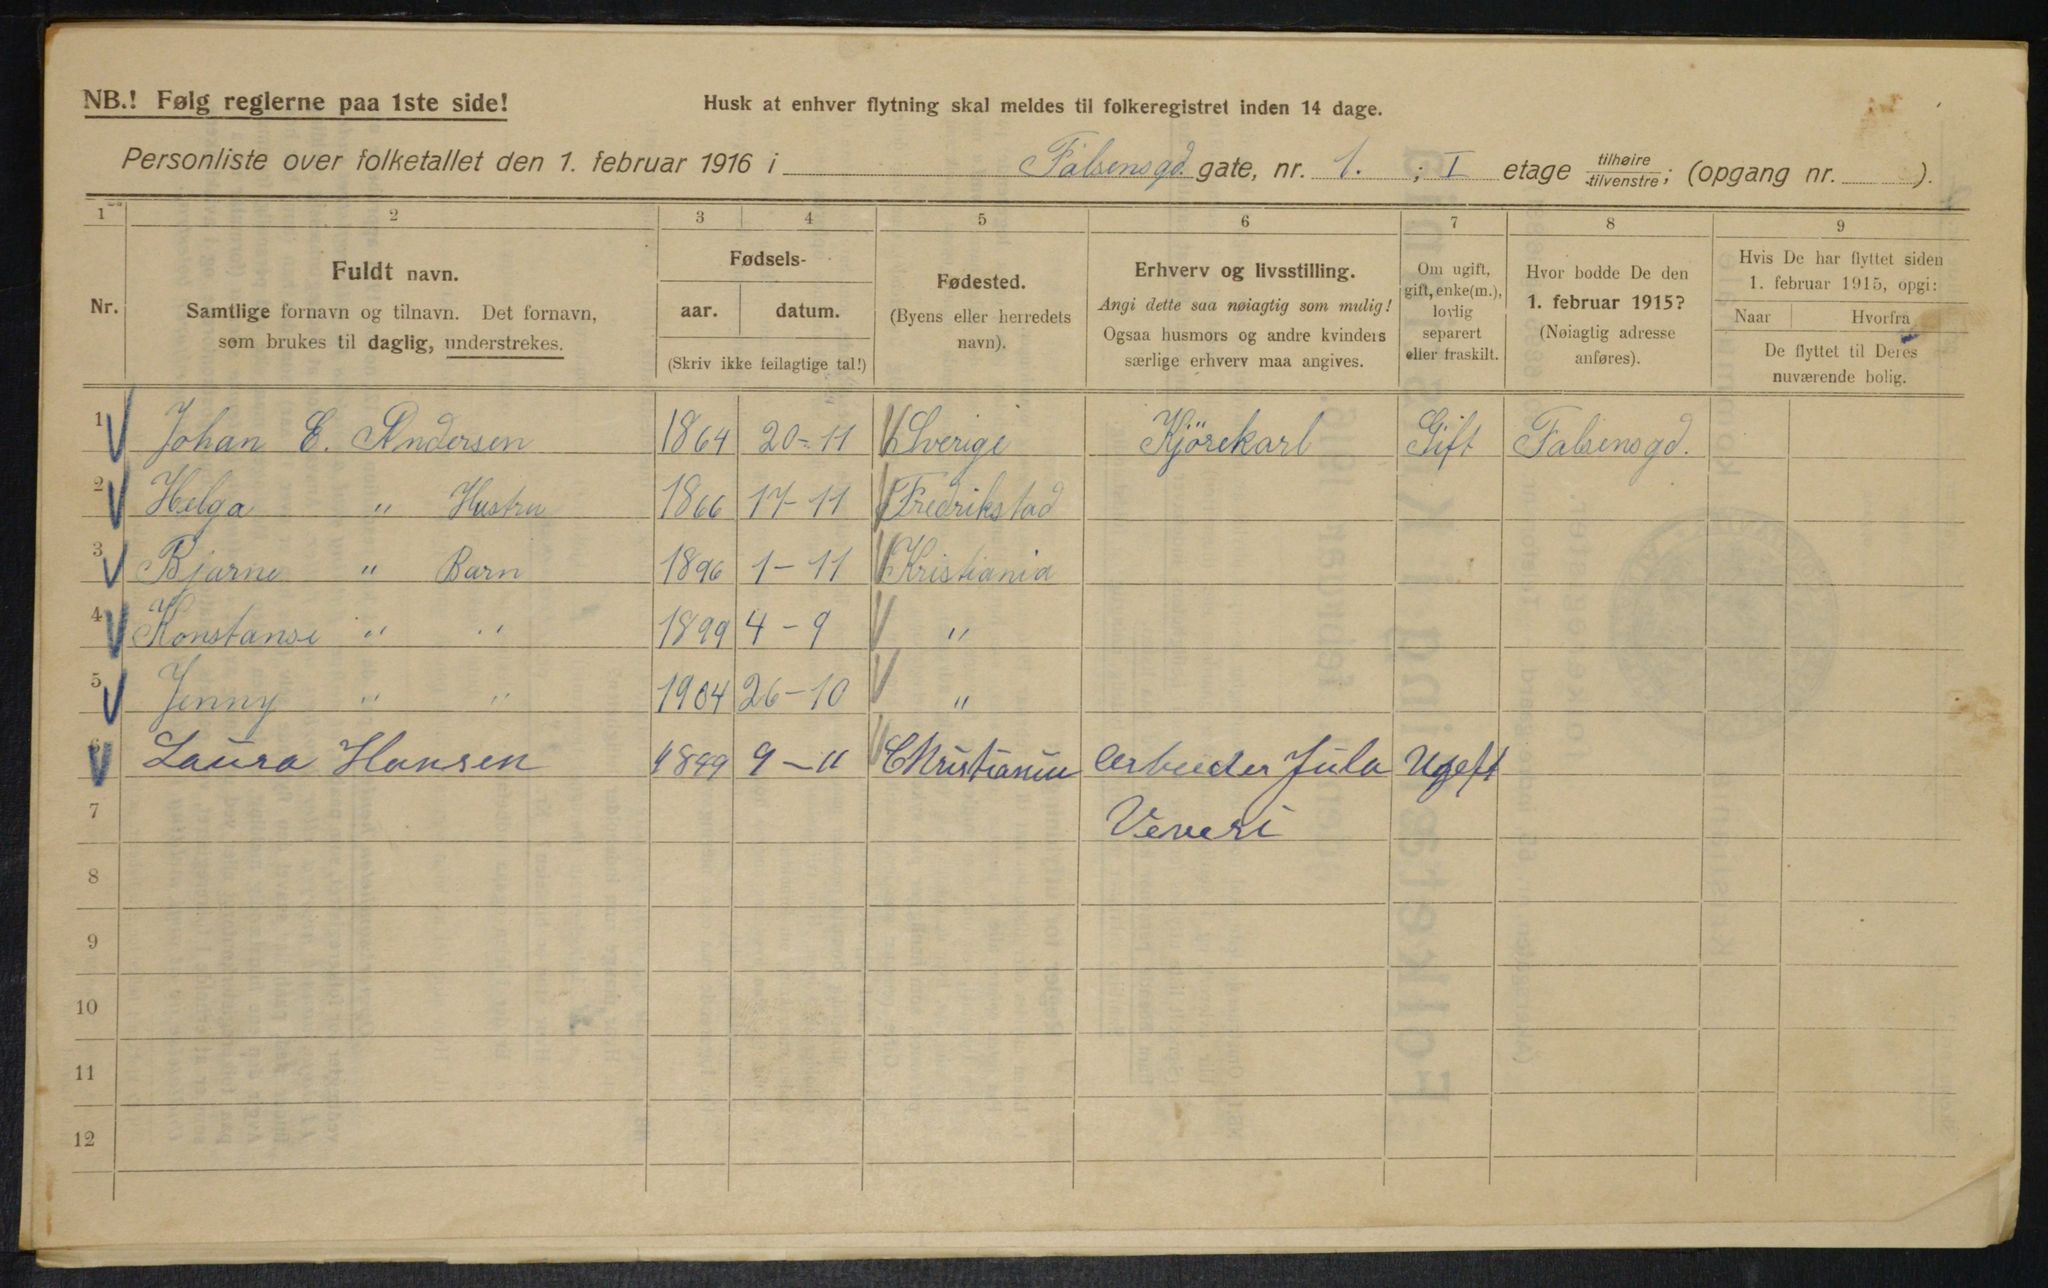 NB.! Følg reglerne paa 1ste side!
Husk at enhver flytning skal meldes til folkeregistret inden 14 dage.
Personliste over folketallet den 1. februar 1916 i Falsensgd. gate, nr. 1. ; I etage tilhøire/tilvenstre; (opgang nr. ).
1 2 3 4 5 6 7 8 9
Nr.
Fuldt navn.
Samtlige fornavn og tilnavn. Det fornavn,
som brukes til daglig, understrekes.
Fødsels-
aar. datum.
(Skriv ikke feilagtige tal!)
Fødested.
(Byens eller herredets
navn).
Erhverv og livsstilling.
Angi dette saa nøiagtig som mulig!
Ogsaa husmors og andre kvinders
særlige erhverv maa angives.
Om ugift,
gift, enke(m.),
lovlig
separert
eller fraskilt.
Hvor bodde De den
1. februar 1915?
(Nøiagtig adresse
anføres).
Hvis De har flyttet siden
1. februar 1915, opgi:
Naar Hvorfra
De flyttet til Deres
nuværende bolig.
1 Johan E. Andersen 1864 20-11 Sverige Kjörekarl Gift Falsensgd.
2 Helga " Hustru 1866 17-11 Fredrikstad
3 Bjarne " Barn 1896 1-11 Kristiania
4 Konstanse " " 1899 4-9 "
5 Jenny " " 1904 26-10 "
6 Laura Hansen 1899 9-11 Christiania Arbeider Jula Ugeft
7 Veveri
8
9
10
11
12